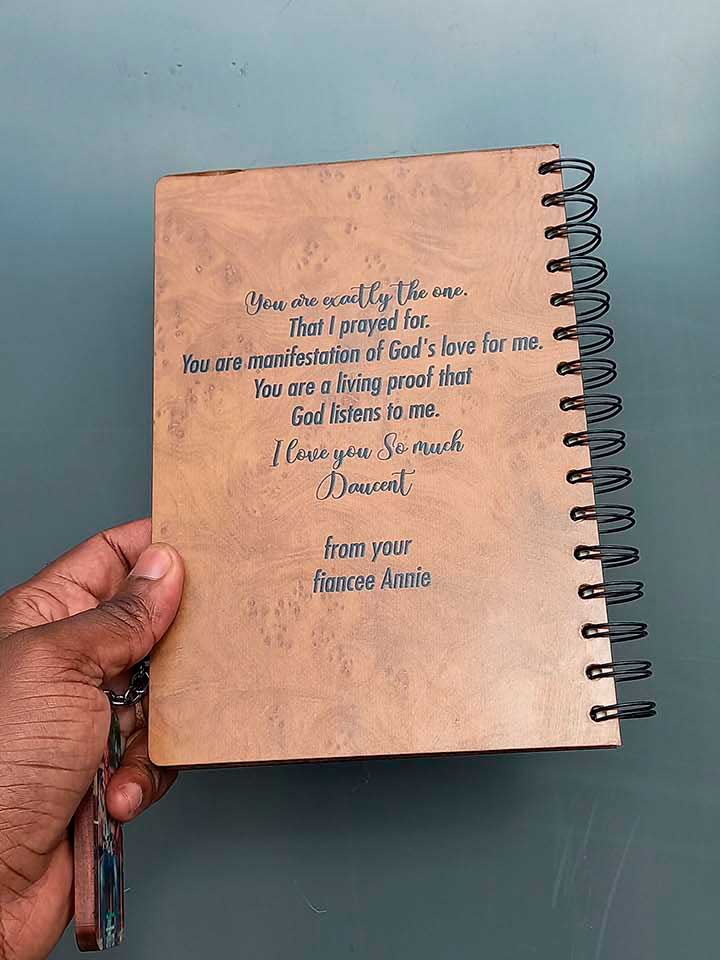 You are exactly the one.
That I prayed for.
You are manifestation of God's love for me.
You are a living proof that
God listens to me.
I love you So much
Daucent
from your
fiancee Annie